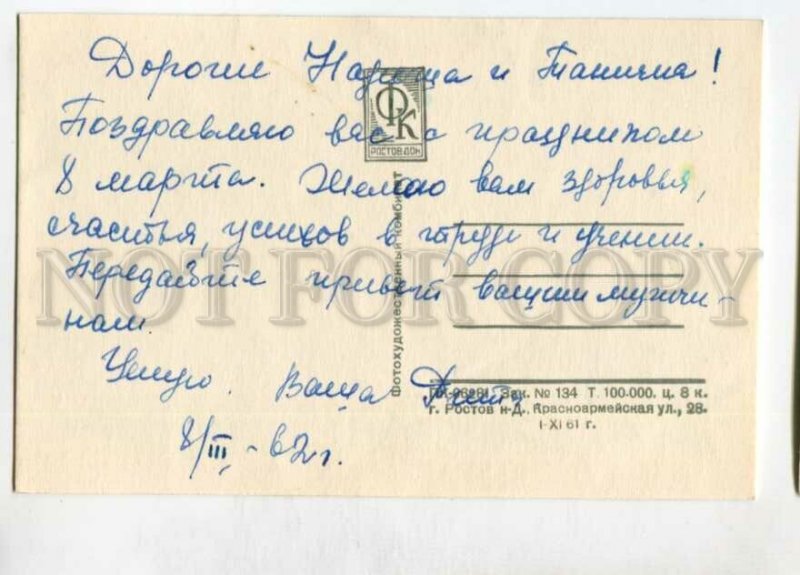 Дорогие Надюша и Танечка!
Поздравляю вас с праздником
8 марта. Желаю вам здоровья,
счастья, успехов в труде и учении.
Передайте привет вашим мужчи-
нам.
Целую. Ваша
8/III - 62 г.
ФК
РОСТОВ ДОН
Фотохудожественный комбинат
Зак. № 134 Т. 100.000. ц. 8 к.
г. Ростов н-Д., Красноармейская ул., 28.
I-XI 61 г.
NOT FOR COPY